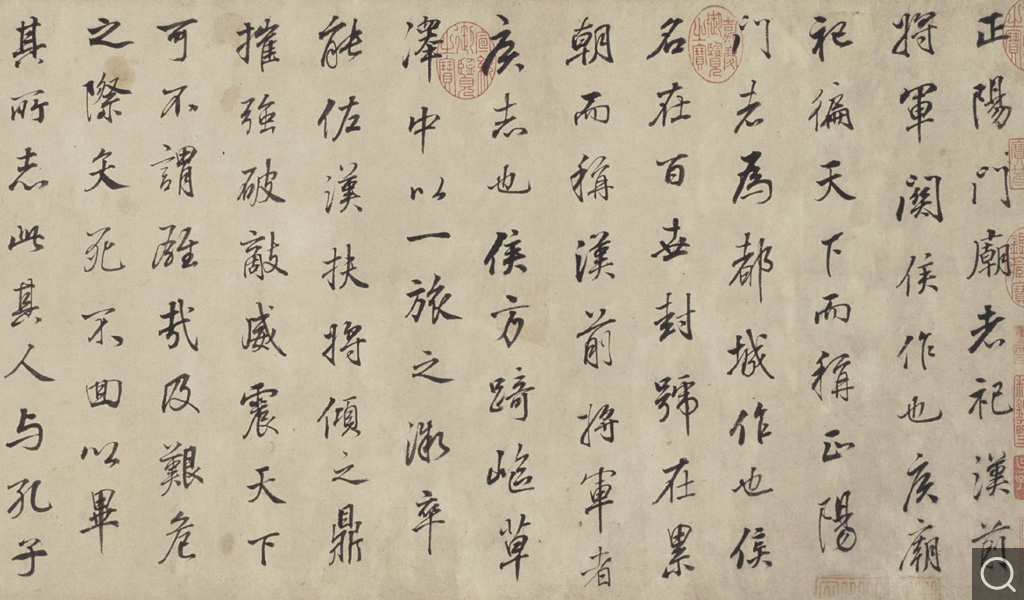 正陽門廟者祀漢前
將軍關侯作也侯廟
祀徧天下而稱正陽
門者為都城作也侯
名在百世封號在累
朝而稱漢前將軍者
侯志也侯方踦嶇草
澤中以一旅之微卒
能佐漢扶將傾之鼎
摧強破敵威震天下
可不謂雄哉及艱危
之際矢死不回以畢
其所志此其人与孔子